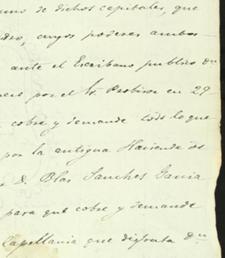 uno de dichos capitales, que
cuyos poderes ambos
ante el Escribano publico Dn
por el Sr. Provisor en 29
cobre y demande todo lo que
por la antigua Hacienda
D. Blas Sanches Garcia
para qué cobre y demande
Capellania que disfruta Dn